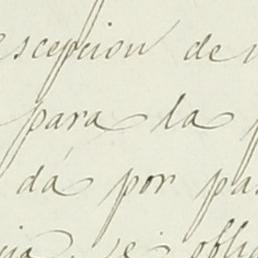 escepcion de
para la
dá por pa
se obli